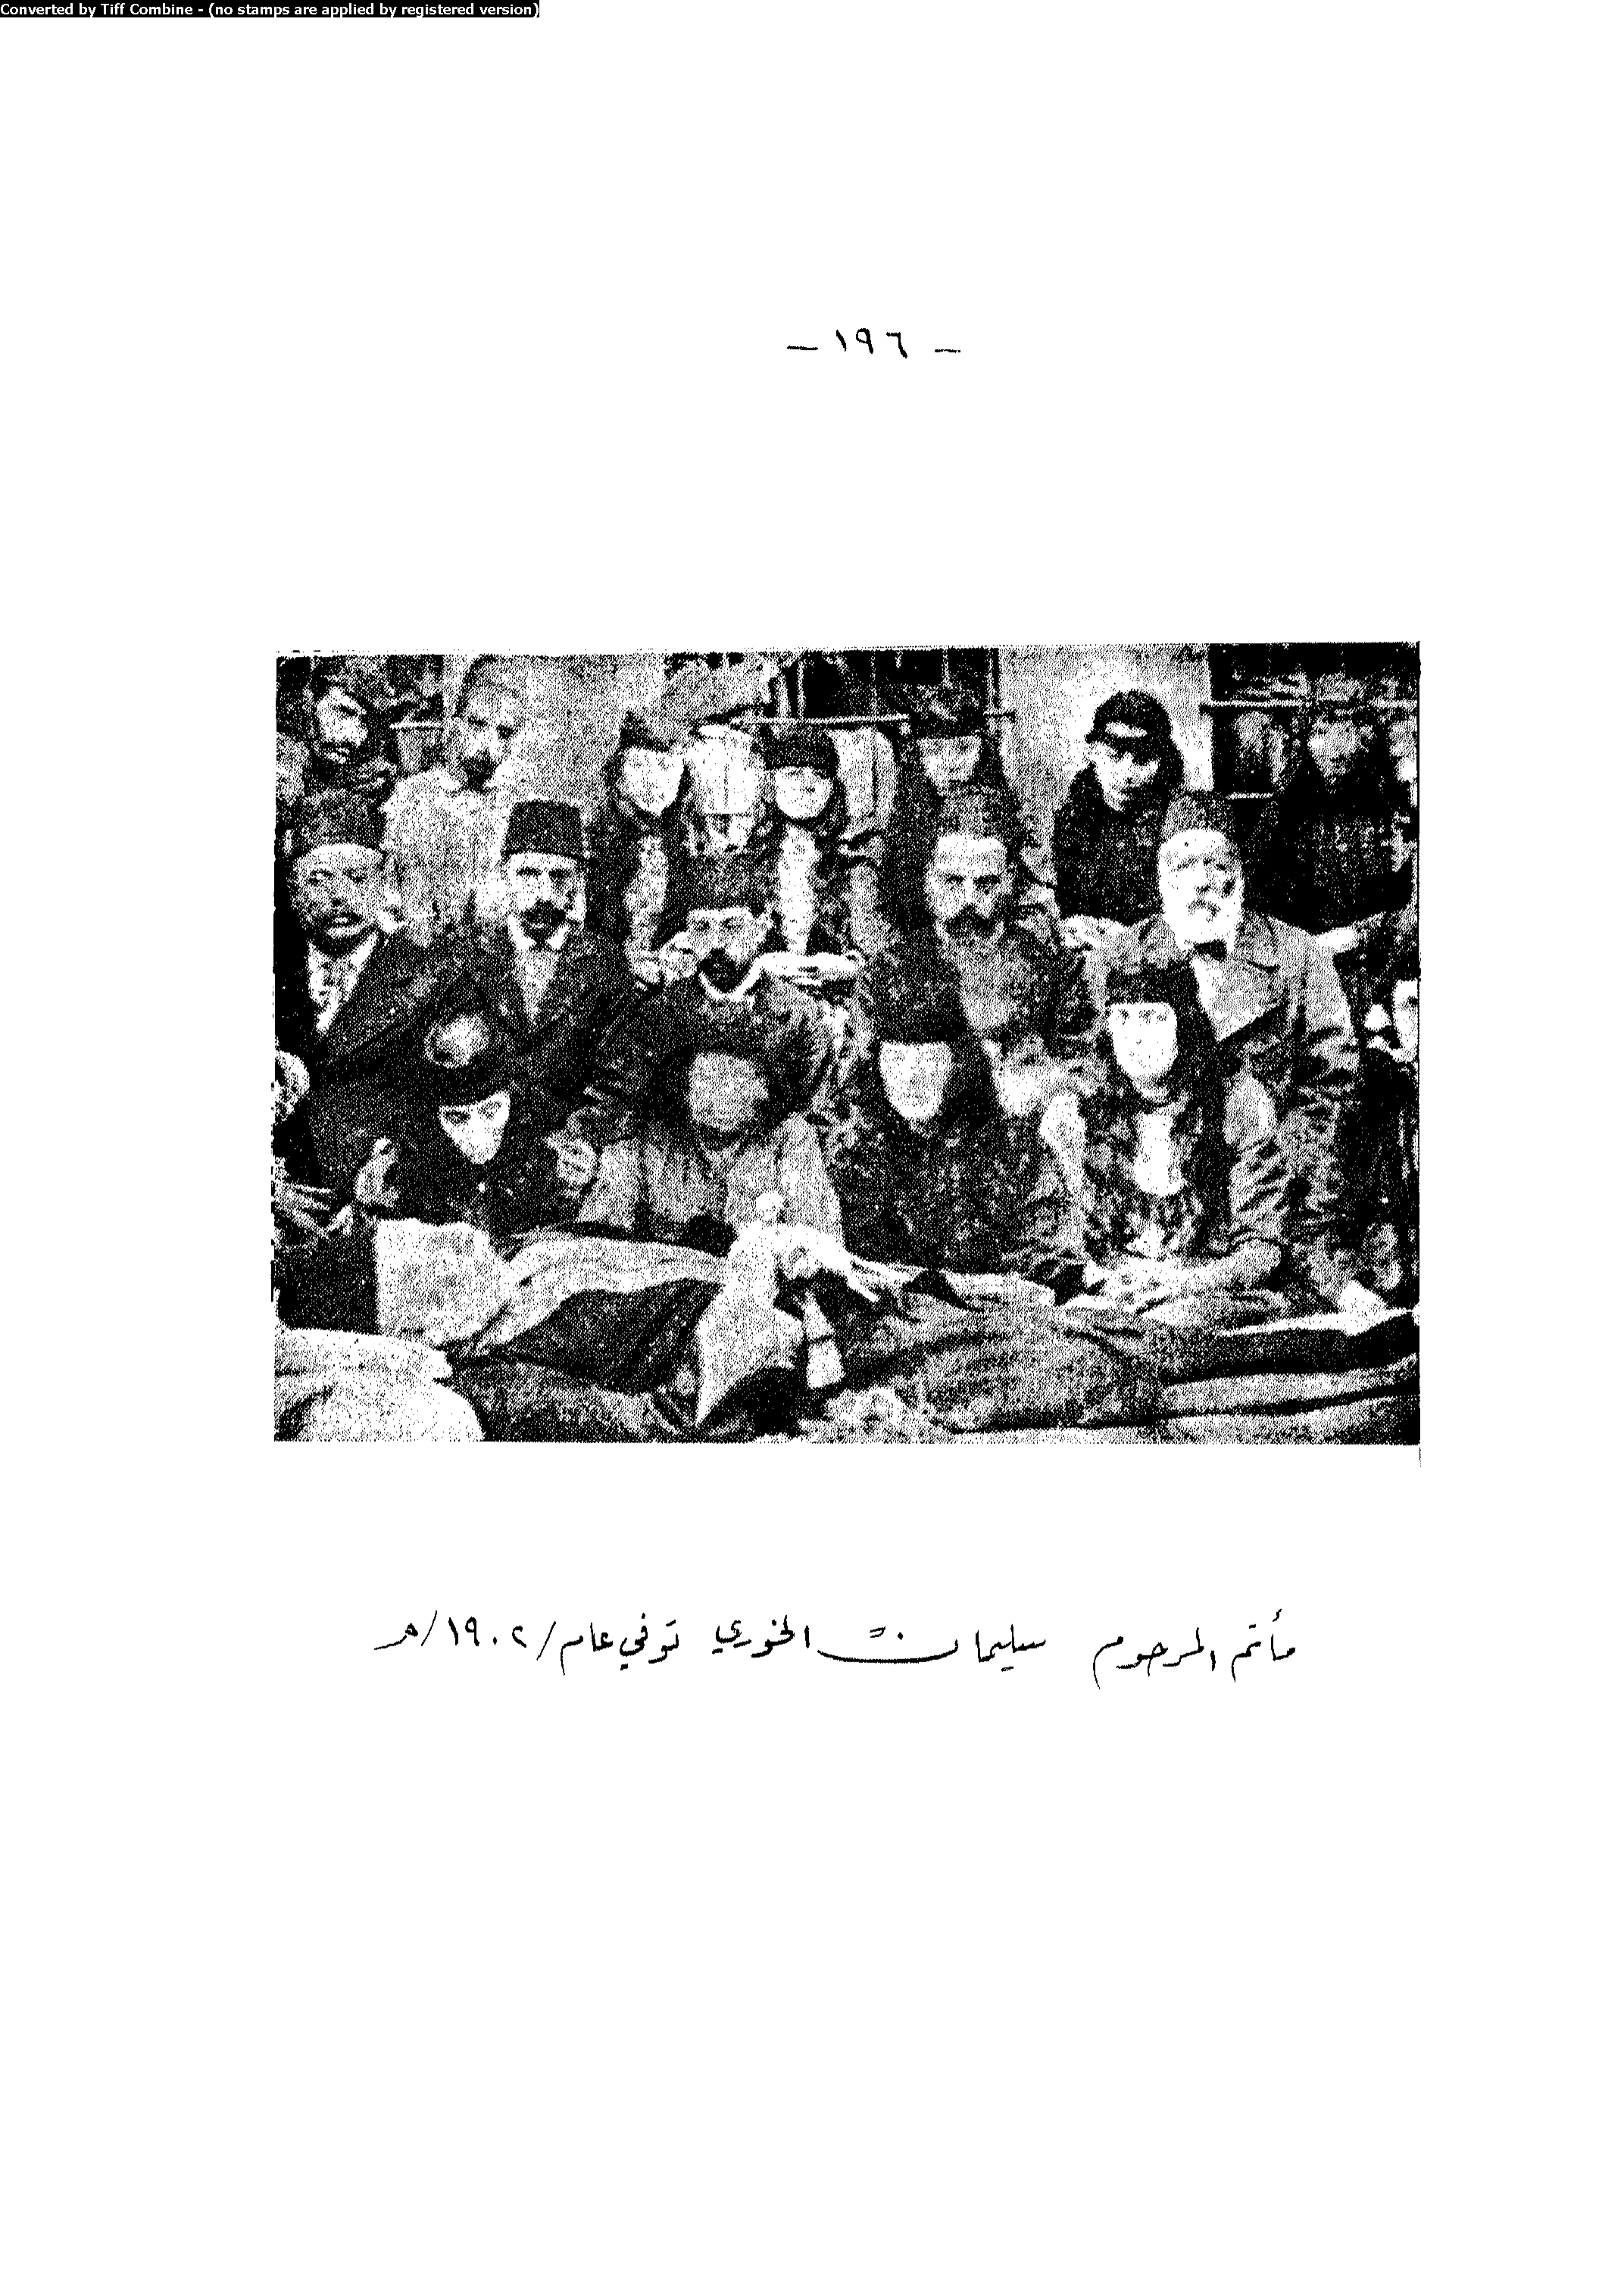 Converted by Tiff Combine - (no stamps are applied by registered version)
– ١٩٦ –
مأتم المرحوم سليمان الخوري توفي عام /١٩٠٢/هـ